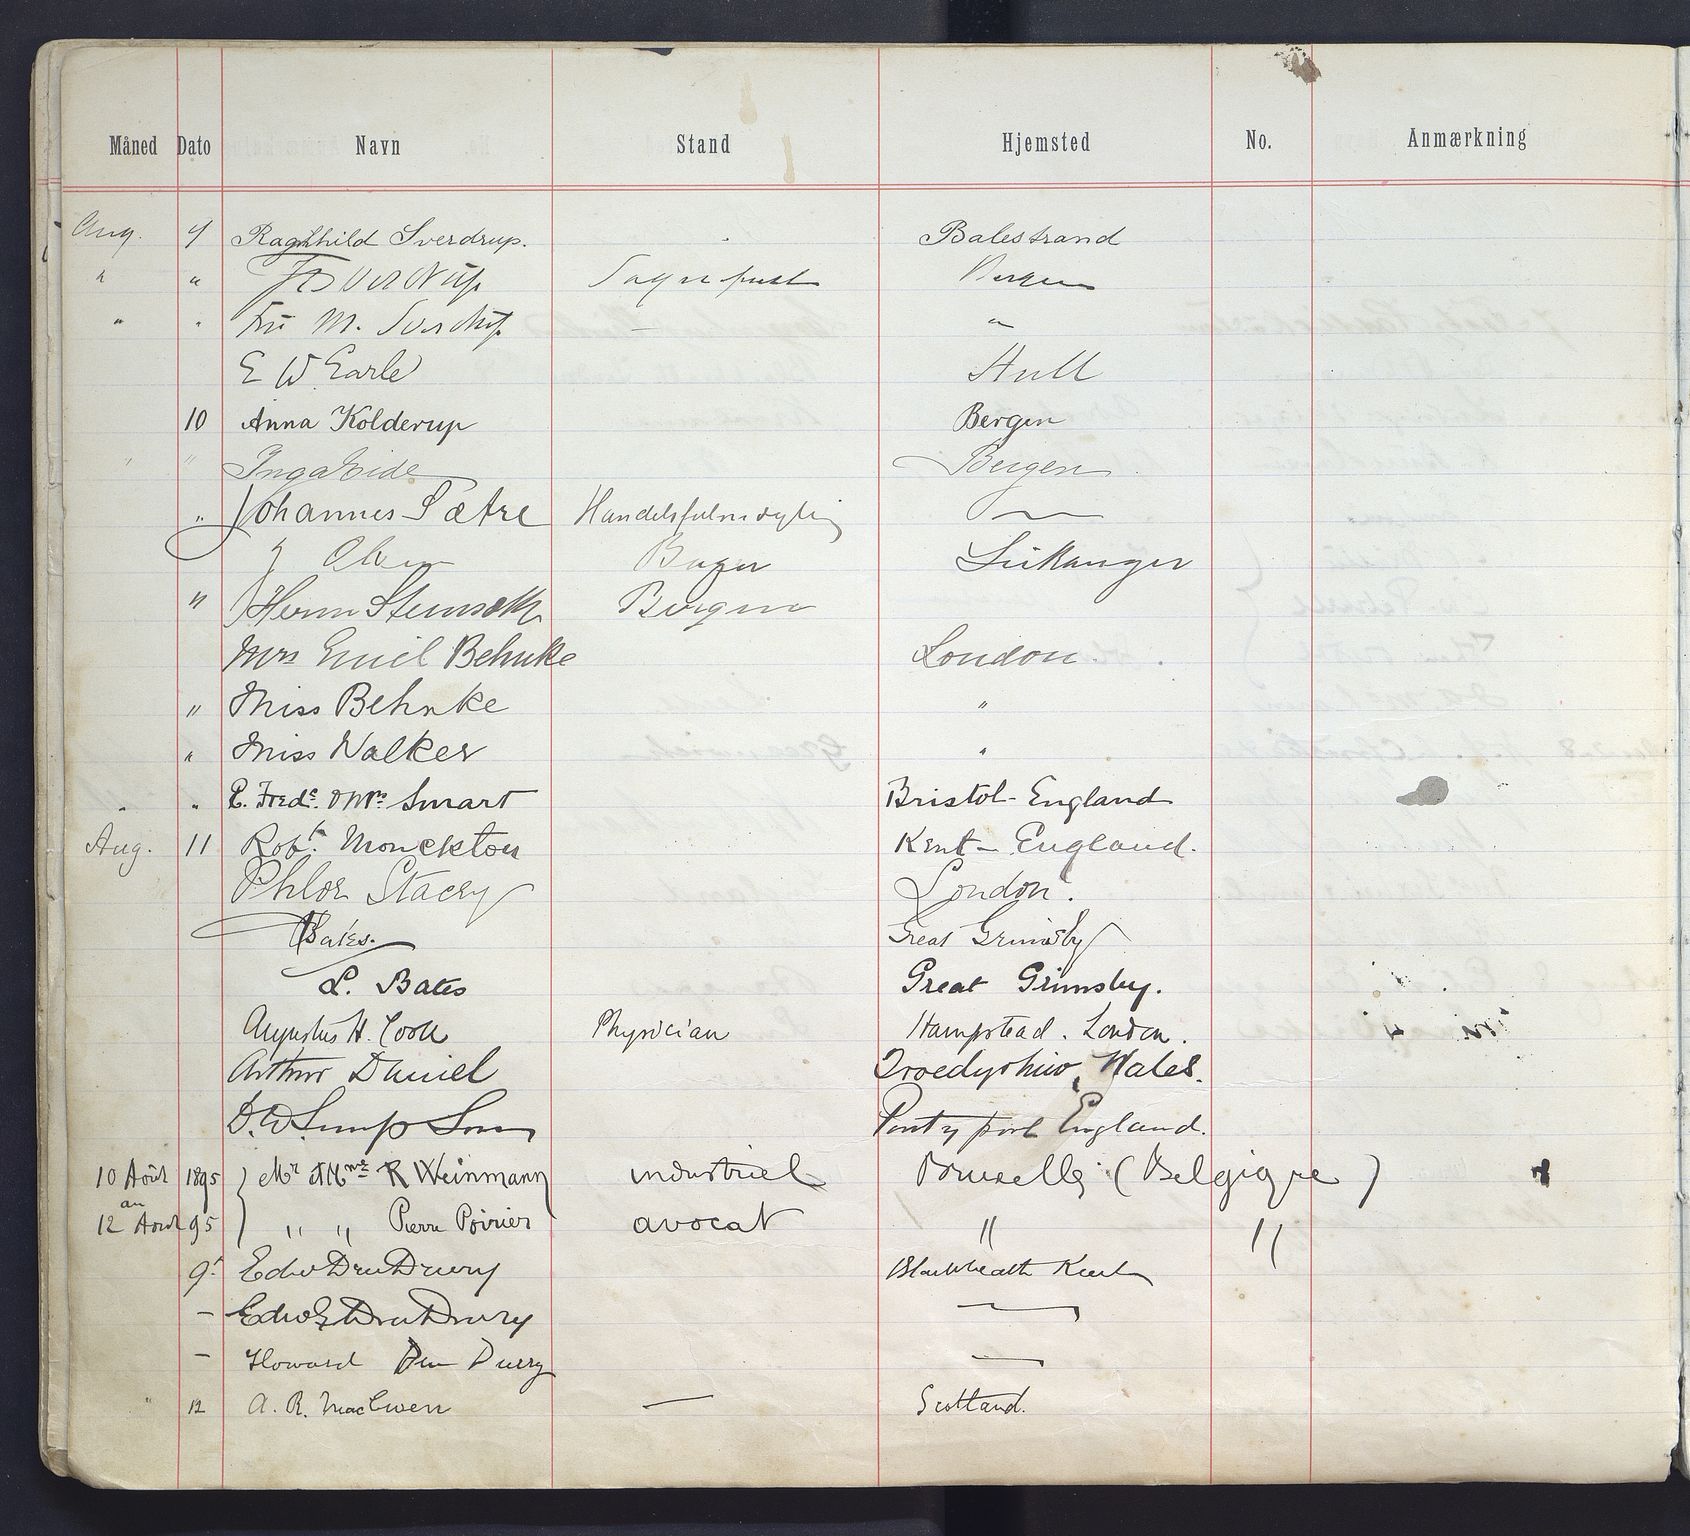 Måned Dato Navn Stand Hjemsted No. Anmærkning
Aug. 9 Raghhild Sverdrup. Balestrand
" " Sverdrup Bergen
" " Fru M. Sverdrup — "
E W Earle Hull
10 Anna Kolderup Bergen
" " Inga Eide Bergen
" Johannes Sætre Handelsfulmægtig —
Bager
" Herm Bergen
Mrs Emil Behnke London.
" Miss Behnke "
" Miss Walker "
" " E. Fredc. & Mrs Smart Bristol - England
Aug. 11 Robt. Monckton Kent - England.
Stacey London.
Bates. Great Grimsby
L. Bates Great Grimsby.
Augustus H. Cook Physician Hampstead. London.
Arthur Daniel Troedyrhiw, Wales.
D. W. England.
10 Août 1895 } Mr & Mme R Weinmann industriel Bruxelles (Belgique)
au
12 Août 95 } " " Pierre Poirier avocat " "
9t Edw Dru Drury Blackheath Kent
— Edw G Dru Drury —
— Howard Dru Drury —
" 12 A. R. MacEwen — Scotland.